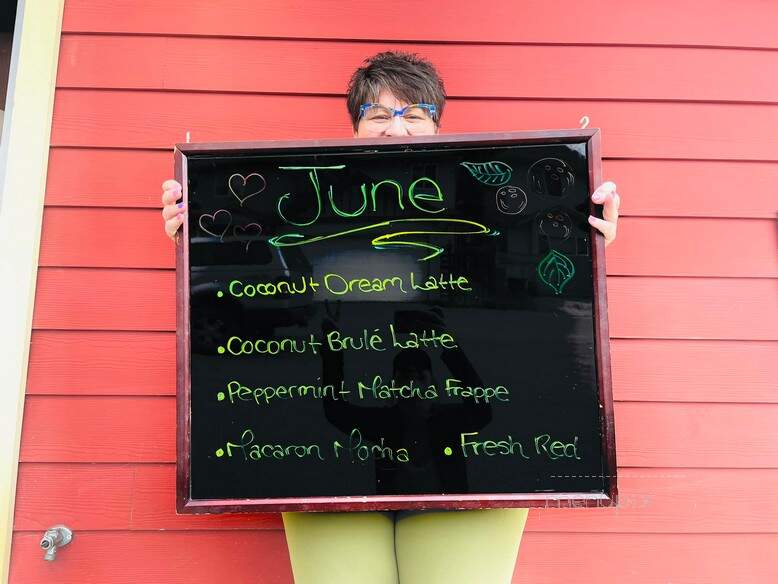 June
• Coconut Dream Latte
• Coconut Brulé Latte
• Peppermint Matcha Frappe
• Macaron Mocha • Fresh Red